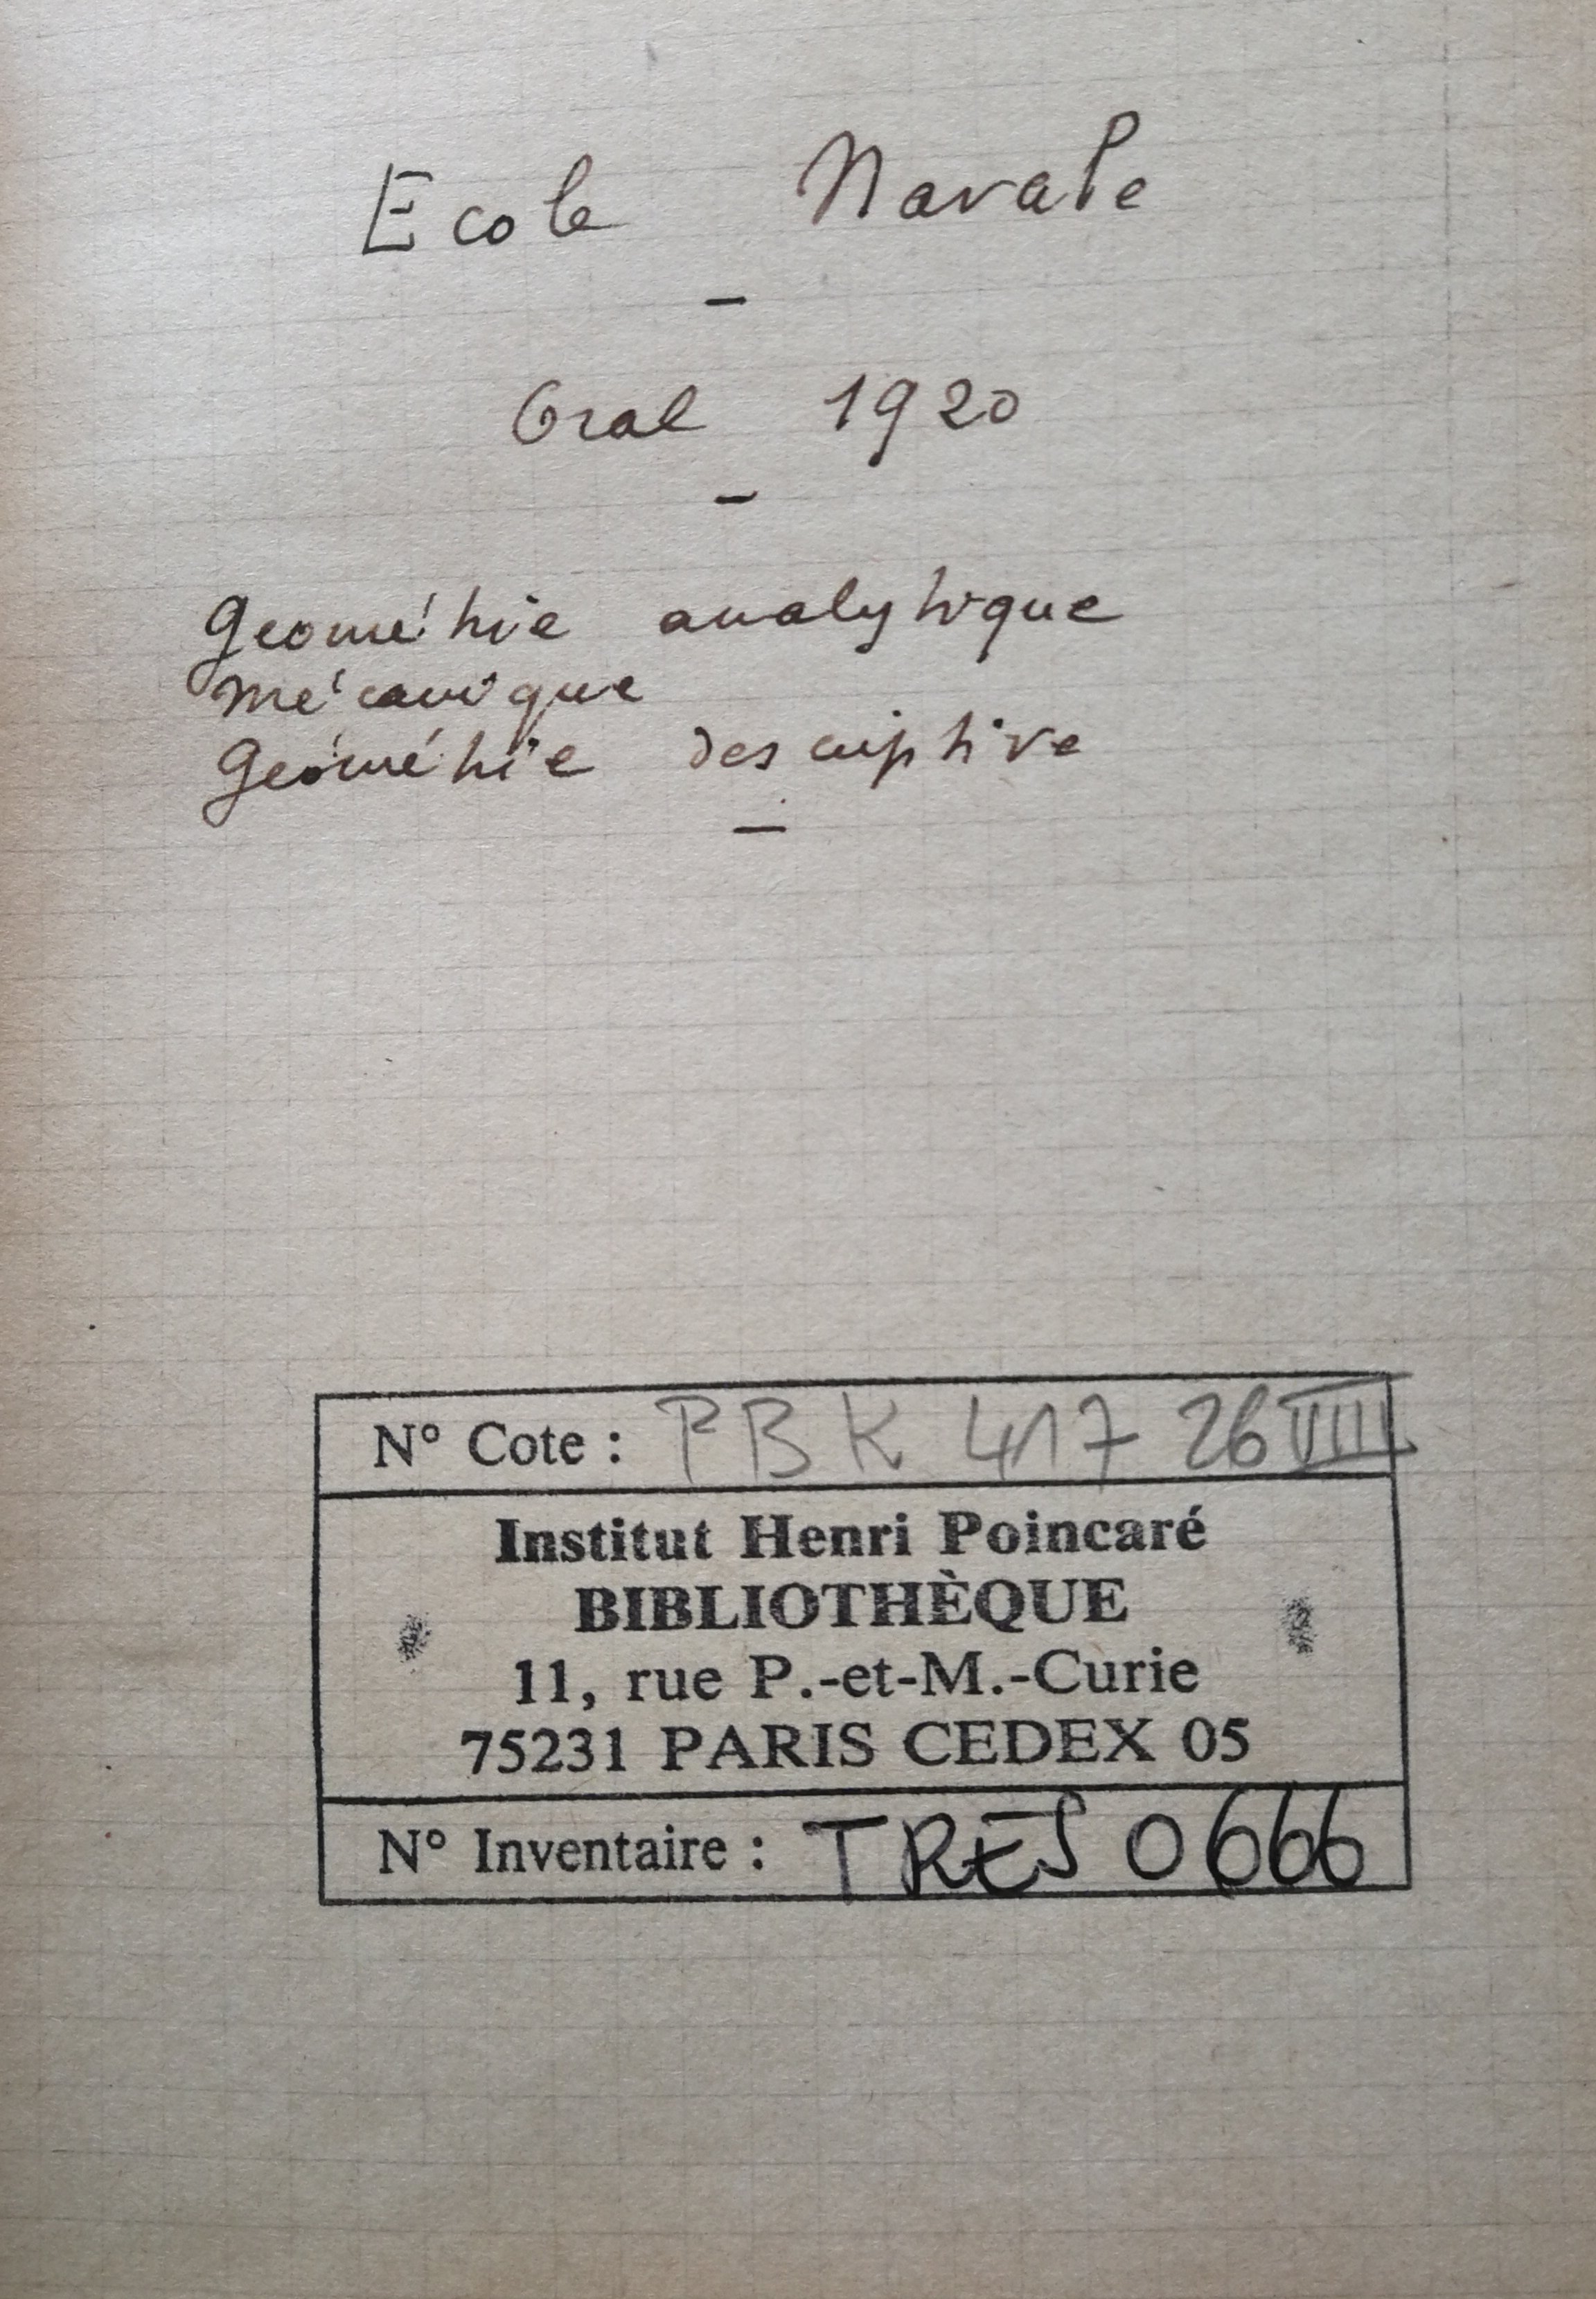 Ecole Navale
–
Oral 1920
–
Géométrie analytique
Mécanique
Géométrie descriptive
–
N° Cote : PBK 417 26 VIII
Institut Henri Poincaré
BIBLIOTHÈQUE
11, rue P.-et-M.-Curie
75231 PARIS CEDEX 05
N° Inventaire : TRES 0666